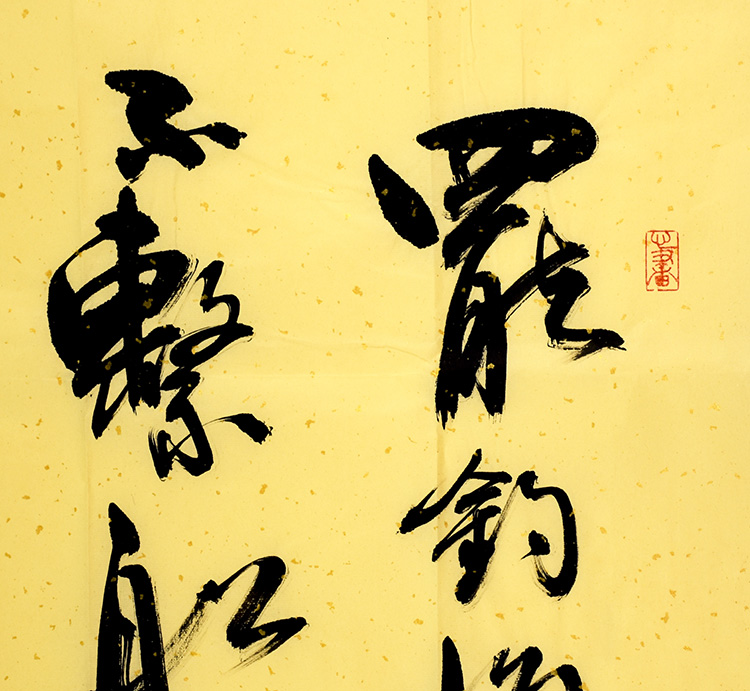 罷釣
不繫船